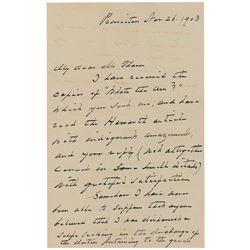 Princeton Nov 26. 1903
My dear Mr Thom
I have received the
copies of "Wrote the
which you sent me, and have
read the Howarth article
with indignant amazement,
and your reply (not altogether
correct in some small details)
with grateful satisfaction
Somehow I have never
been able to suppose that anyone
believed that I was dishonest or
self seeking in the discharge of
the duties pertaining to the